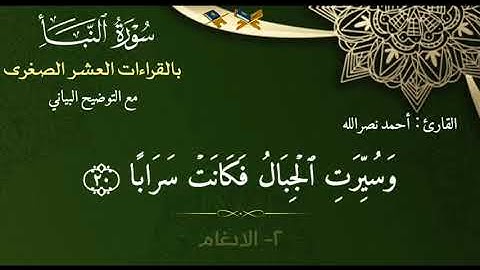 سُورَةُ ٱلنَّبَأ
بالقراءات العشر الصغرى
مع التوضيح البياني
القارئ : أحمد نصرالله
وَسُيِّرَتِ ٱلْجِبَالُ فَكَانَتْ سَرَابًا ٢٠
٢- الادغام